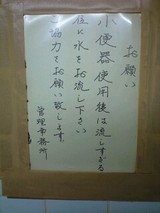 お願い
小便器使用後は流しすぎる
位に水をお流し下さい
ご協力をお願い致します。
管理事務所